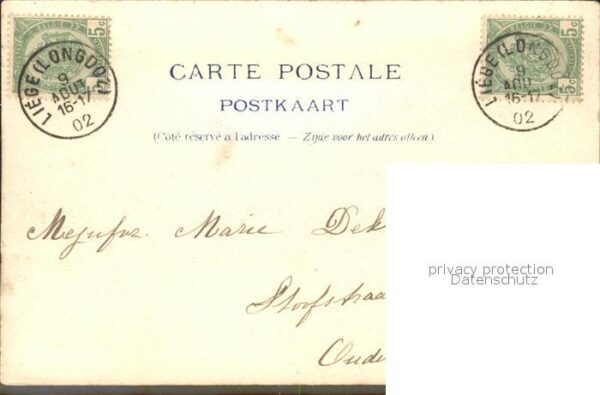 BELGIQUE 5c
BELGIE 5c
LIÉGE (LONGDOZ)
9
AOUT
16-17
02
LIÉGE (LONGDOZ)
9
AOUT
16-17
02
CARTE POSTALE
POSTKAART
(Côté réservé à l'adresse — Zijde voor het adres alleen)
Mejufvr. Marie Dek
privacy protection
Datenschutz
Stoofstraa
Oude